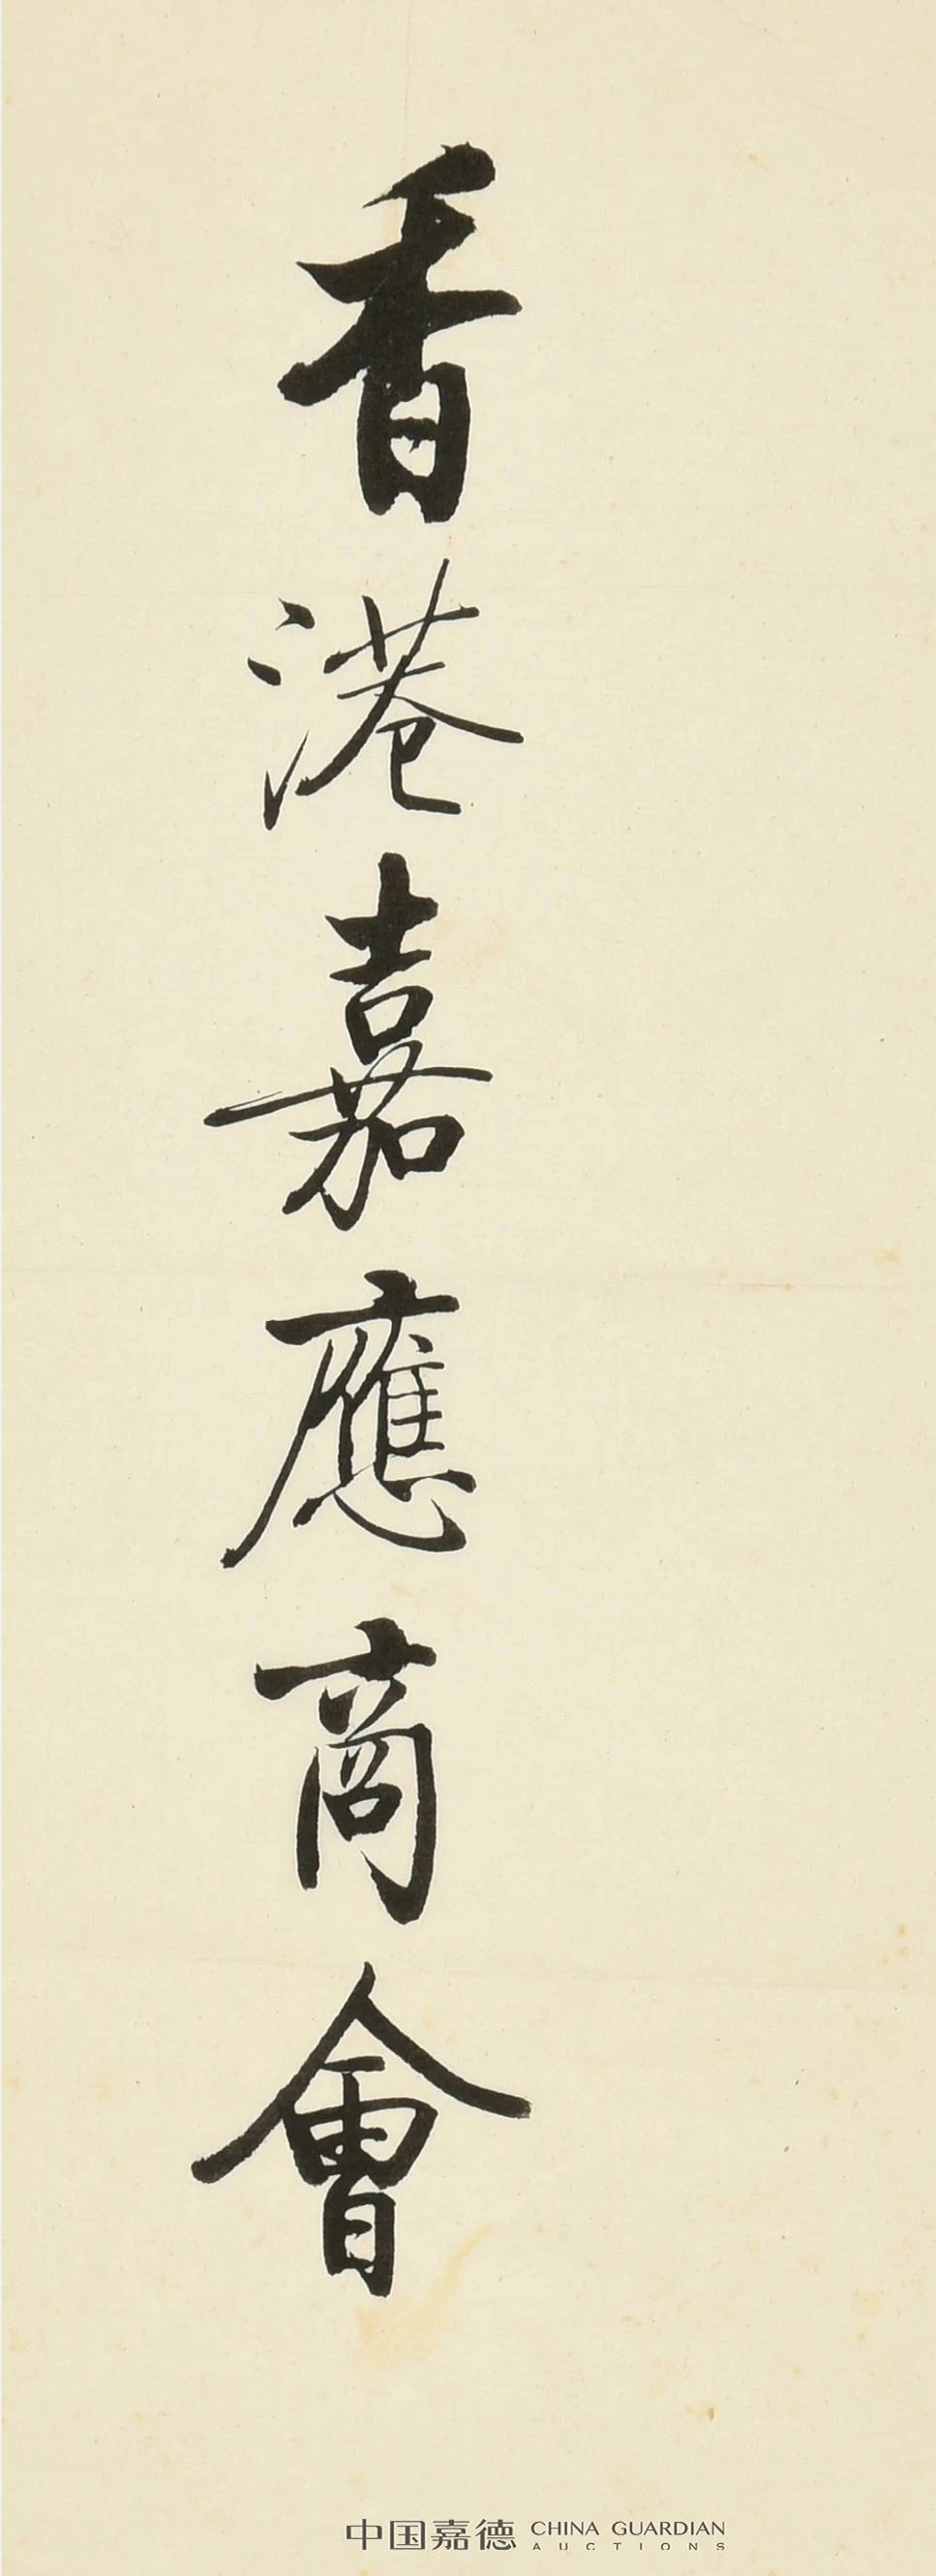 香港嘉應商會
中国嘉德 CHINA GUARDIAN
AUCTIONS